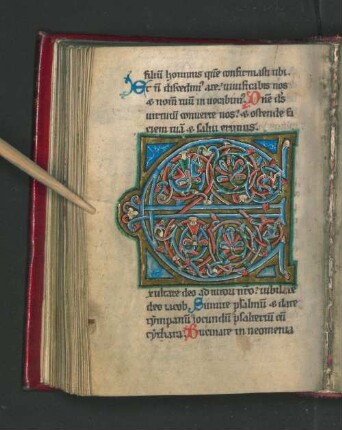 filiu hominis que confirmasti tibi.
Et n discedim a te. uiuificabis nos
& nom tuu inuocabim. Dne ds
uirtutu conuerte nos. & ostende fa
ciem tua & salui erimus.
E
xultate deo adiutori nro. iubilate
deo iacob. Sumite psalmu & date
tympanu iocundu psalteriu cu
cythara. Bucinate in neomenia